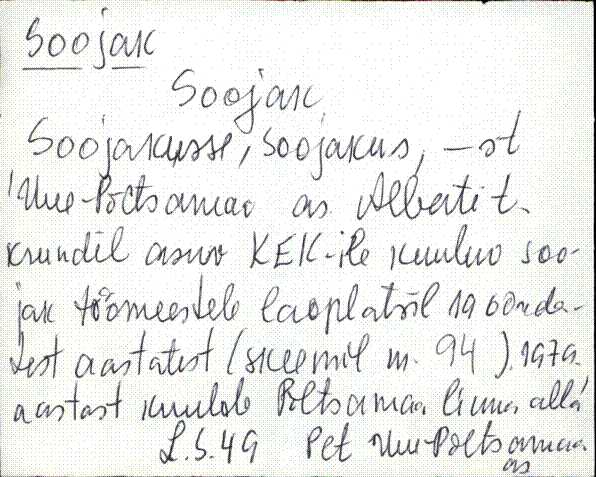 Soojak
Soojak
Soojakusse, Soojakus, -st
Uue-Põltsamaa as. Alberti t.
krundil asuv KEK-ile kuuluv soo-
jak töömeestele laoplatsil 1960nda-
test aastatest (skeemil nr. 94). 1979.
aastast kuulub Põltsamaa linna alla
L.S.49 Plt Uue-Põltsamaa
as